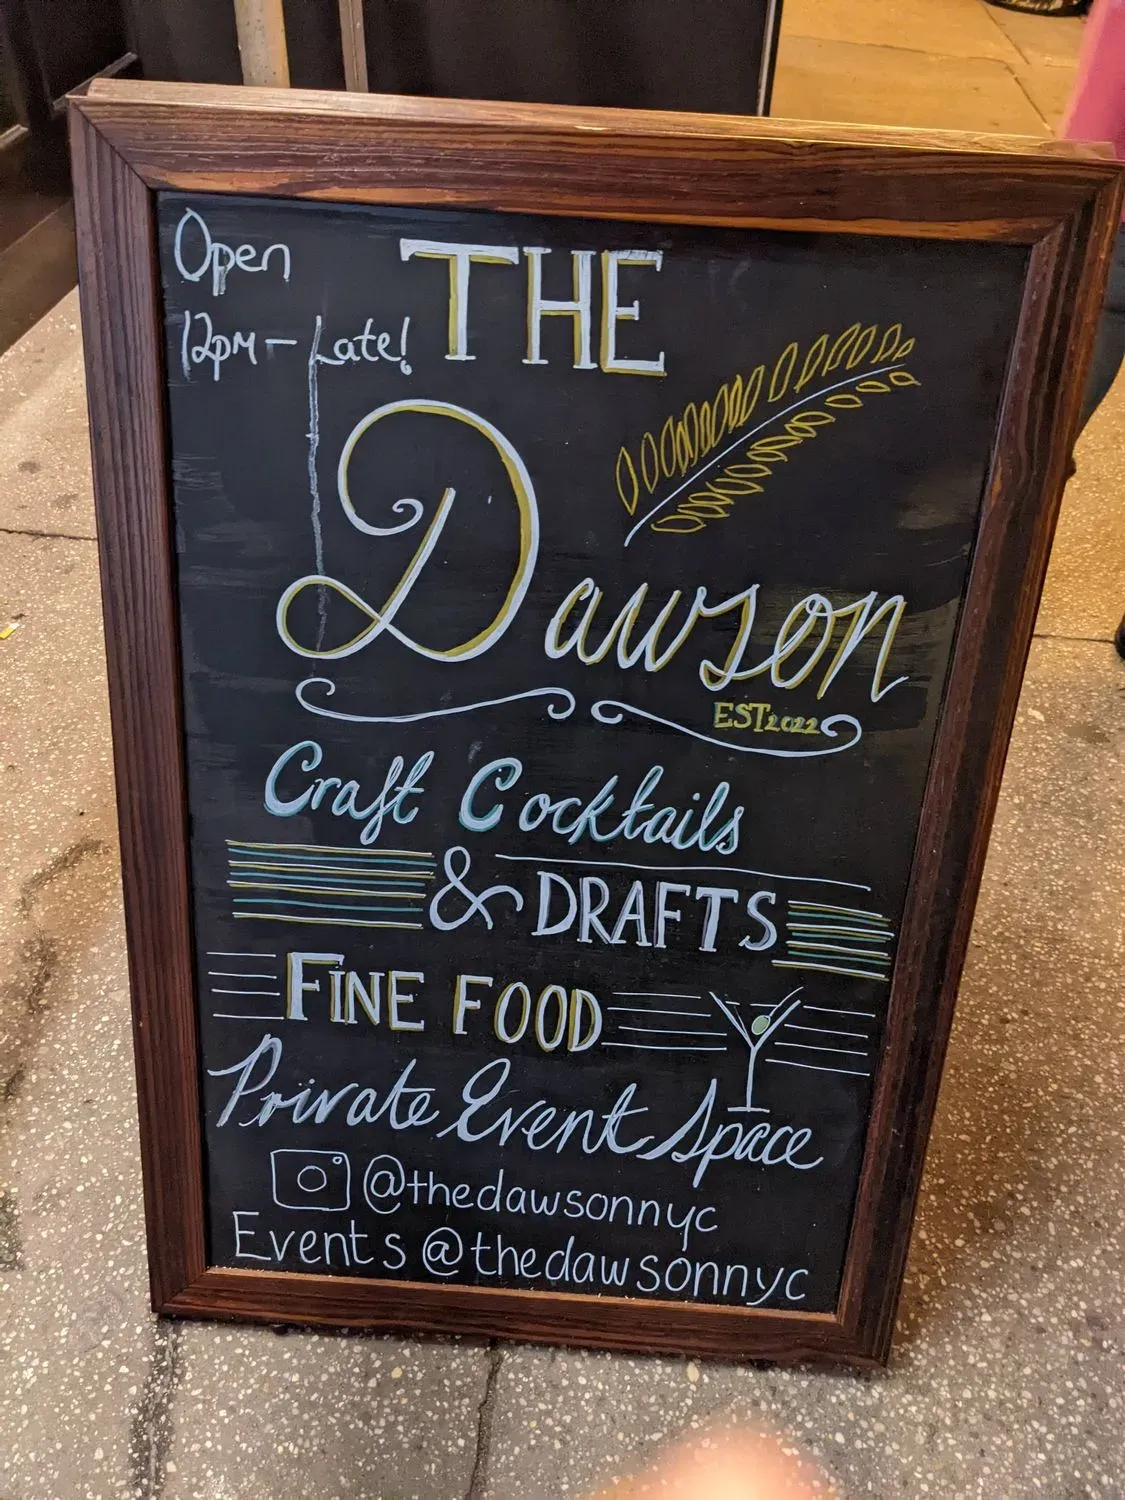 Open
12pm - Late!
THE
Dawson
EST 2022
Craft Cocktails
& DRAFTS
FINE FOOD
Private Event Space
@thedawsonnyc
Events @thedawsonnyc